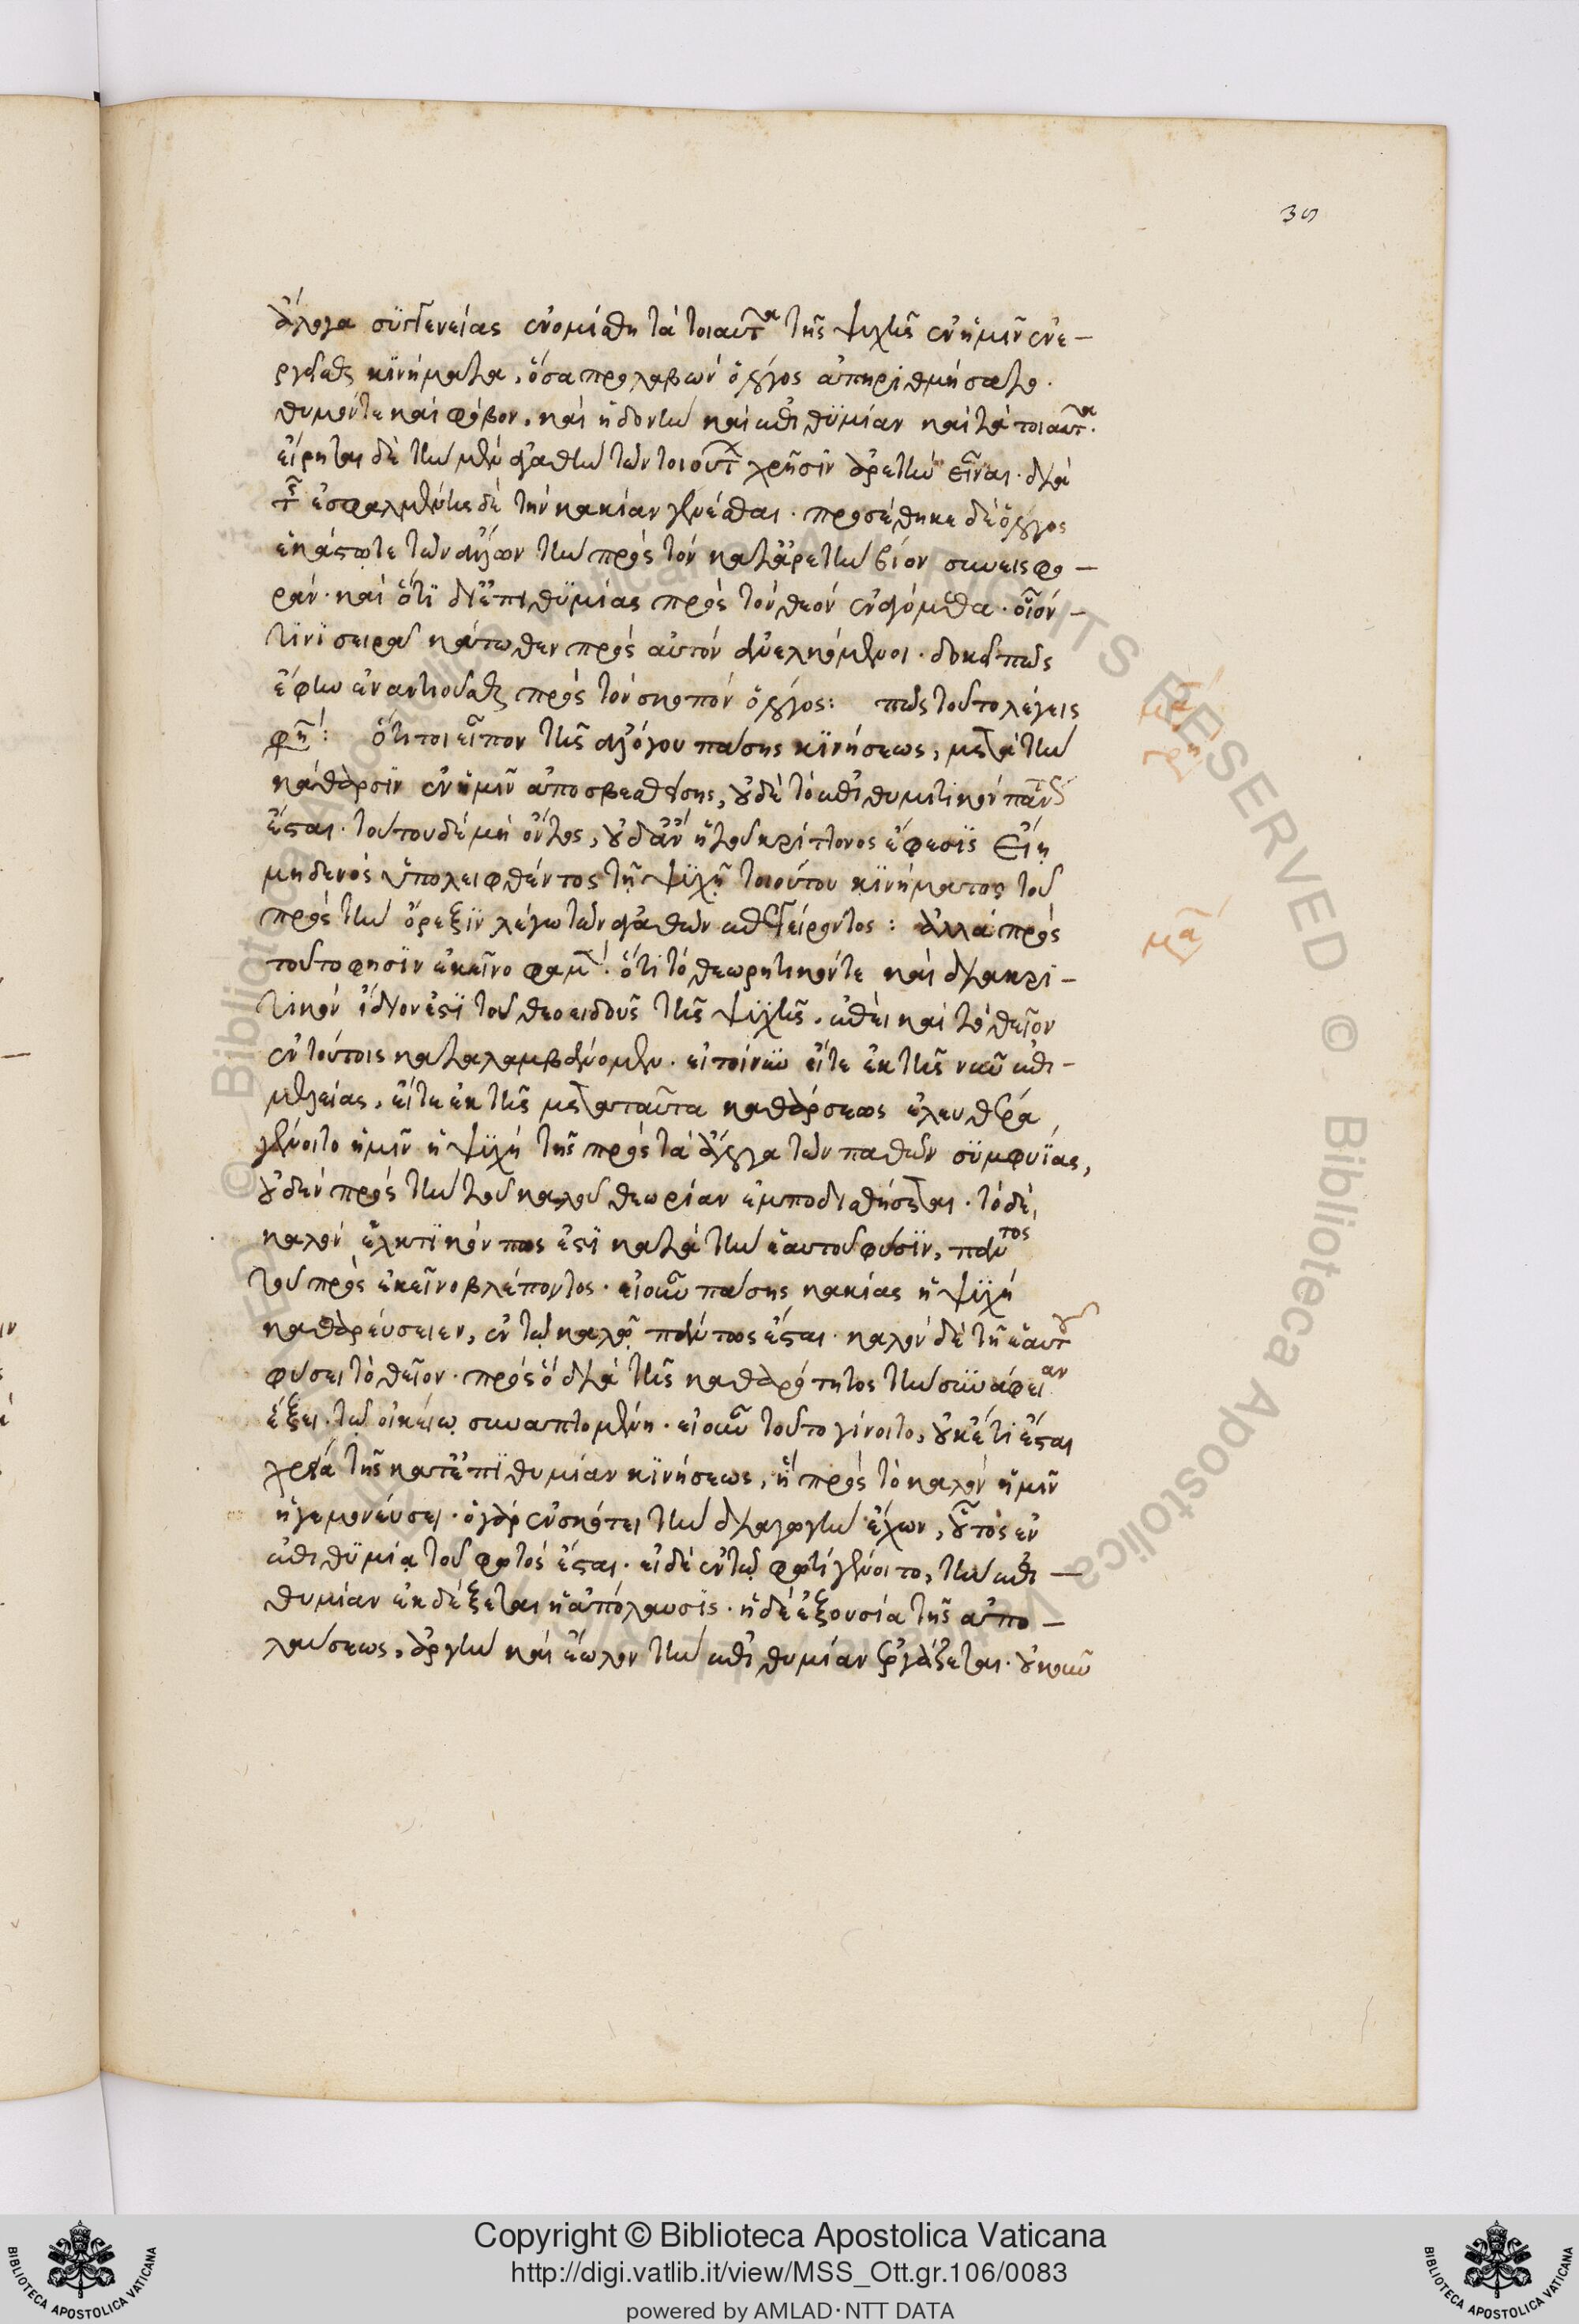 39
ἄλογα συγγενείας ἐνομίσθη τὰ τοιαῦτα τῆς ψυχῆς ἐν ἡμῖν ἐνε-
ργεῖσθαι κϊνήματα, ὅσα προλαβὼν ὁ λόγος ἀπηριθμήσατο.
θυμόν τε καὶ φόβον, καὶ ἡδονὴν καὶ ἐπιθϋμίαν καὶ τὰ τοιαῦτα.
εἴρηται δὲ τὴν μὲν ἀγαθὴν τῶν τοιούτων χρῆσϊν ἀρετὴν εἶναι. διὰ
τῆς ἐσφαλμένης δὲ τὴν κακίαν γενέσθαι. προσέθηκε δὲ ὁ λόγος
ἑκάστῳ τε τῶν ἄλλων τὴν πρὸς τὸν κατ' ἀρετὴν βίον συνεισφο-
ράν. καὶ ὅτϊ δι' ἐπιθϋμίας πρὸς τὸν θεὸν ἐναγόμεθα. οἷόν-
τϊνϊ σειρᾷ κάτωθεν πρὸς αὐτὸν ἀνελκόμενοι. δοκεῖ πῶς
ἔφην ἐναντιοῦσθαι πρὸς τὸν σκοπὸν ὁ λόγος: πῶς τοῦτο λέγεις
φησί: ὅτι τοι εἶπον τῆς ἀλόγου πάσης κϊνήσεως, μετὰ τὴν
κάθαρσϊν ἐν ἡμῖν ἀποσβεσθείσης, οὐδὲ τὸ ἐπιθυμητικὸν πάντως
ἔσται. τούτου δὲ μὴ ὄντος, οὐδ' ἂν ἡ τοῦ κρίττονος ἔφεσϊς εἴη
μηδενὸς ὑπολειφθέντος τῇ ψϋχῇ τοιούτου κϊνήματος τοῦ
πρὸς τὴν ὄρεξϊν λέγω τῶν ἀγαθῶν ἐπεγείροντος: ἀλλὰ πρὸς
τοῦτο φησϊν ἐκεῖνο φαμέν. ὅτι τὸ θεωρητικόν τε καὶ διακρι-
τϊκὸν ἴδιον ἐστϊ τοῦ θεοειδοῦς τῆς ψϋχῆς. ἐπεὶ καὶ τὸ θεῖον
ἐν τούτοις καταλαμβάνομεν. εἰ τοίνυν εἴτε ἐκ τῆς νῦν ἐπι-
μελείας, εἴτε ἐκ τῆς μετὰ ταῦτα καθάρσεως ἐλευθέρα
γένοιτο ἡμῖν ἡ ψϋχὴ τῆς πρὸς τὰ ἄλογα τῶν παθῶν σϋμφυΐας,
οὐδὲν πρὸς τὴν τοῦ καλοῦ θεωρίαν ἐμποδισθήσεται. τὸ δὲ,
καλὸν ἑλκτϊκόν πως ἐστϊ κατὰ τὴν ἑαυτοῦ φύσϊν, παντὸς
τοῦ πρὸς ἐκεῖνο βλέποντος. εἰ οὖν πάσης κακίας ἡ ψϋχὴ
καθαρεύσειεν, ἐν τῷ καλῷ πάντως ἔσται. καλὸν δὲ τῇ ἑαυτοῦ
φύσει τὸ θεῖον. πρὸς ὃ διὰ τῆς καθαρότητος τὴν συνάφειαν
ἕξει. τῷ οἰκείῳ συναπτομένη. εἰ οὖν τοῦτο γίνοιτο, οὐκέτι ἔσται
χρεία τῆς κατ' ἐπϊθυμίαν κϊνήσεως, ἣ πρὸς τὸ καλὸν ἡμῖν
ἡγεμονεύσει. ὁ γὰρ ἐν σκότει τὴν διαγωγὴν ἔχων, οὗτος ἐν
ἐπιθϋμίᾳ τοῦ φωτὸς ἔσται. εἰ δὲ ἐν τῷ φωτὶ γένοιτο, τὴν ἐπι-
θυμίαν ἐκδέξεται ἡ ἀπόλαυσϊς. ἡ δὲ ἐξουσία τῆς ἀπο-
λαύσεως, ἀργὴν καὶ ἕωλον τὴν ἐπιθυμίαν ἐργάζεται. οὐκοῦν
Copyright © Biblioteca Apostolica Vaticana
http://digi.vatlib.it/view/MSS_Ott.gr.106/0083
powered by AMLAD·NTT DATA
BIBLIOTECA APOSTOLICA VATICANA
BIBLIOTECA APOSTOLICA VATICANA